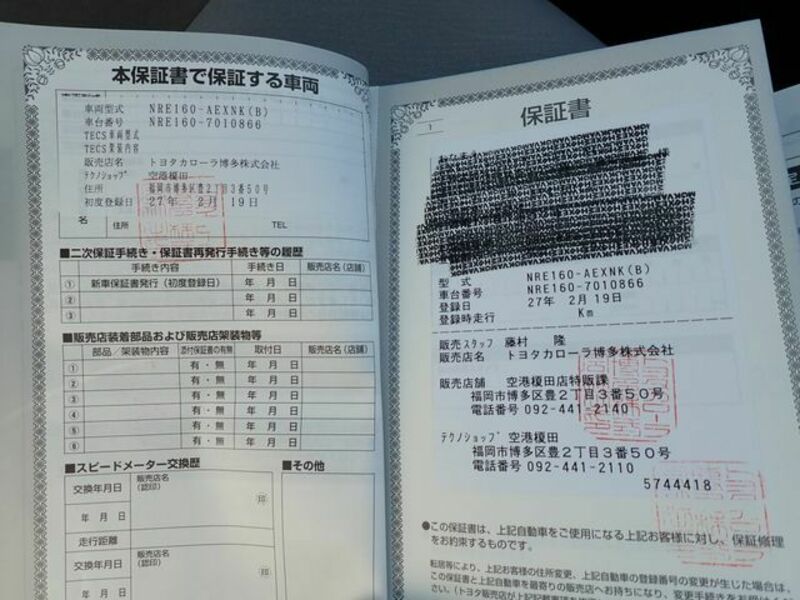 本保証書で保証する車両
車両型式 NRE160-AEXNK(B)
車台番号 NRE160-7010866
TECS車両型式
TECS架装内容
販売店名 トヨタカローラ博多株式会社
テクノショップ 空港榎田
住所 福岡市博多区豊2丁目3番50号
初度登録日 27年 2月19日
名 住所 TEL
■二次保証手続き・保証書再発行手続き等の履歴
手続き内容 手続き日 販売店名(店舗)
① 新車保証書発行(初度登録日) 年 月 日
② 年 月 日
③ 年 月 日
■販売店装着部品および販売店架装物等
部品/架装物内容 添付保証書の有無 取付日 販売店名(店舗)
① 有・無 年 月 日
② 有・無 年 月 日
③ 有・無 年 月 日
④ 有・無 年 月 日
⑤ 有・無 年 月 日
⑥ 有・無 年 月 日
■スピードメーター交換歴
交換年月日 販売店名(認印)
年 月 日 印
走行距離
交換年月日 販売店名(認印)
年 月 日 印
■その他
1
保証書
様
型式 NRE160-AEXNK(B)
車台番号 NRE160-7010866
登録日 27年 2月19日
登録時走行 Km
販売スタッフ 藤村 隆
販売店名 トヨタカローラ博多株式会社
販売店舗 空港榎田店特販課
福岡市博多区豊2丁目3番50号
電話番号 092-441-2140
テクノショップ 空港榎田
福岡市博多区豊2丁目3番50号
電話番号 092-441-2110
5744418
●この保証書は、上記自動車をご使用になる上記お客様に対し、保証修理
をお約束するものです。
転居等により、上記お客様の住所変更、上記自動車の登録番号の変更が生じた場合は、
この保証書と上記自動車を最寄りの販売店へお持ちになり、変更手続きをお受け